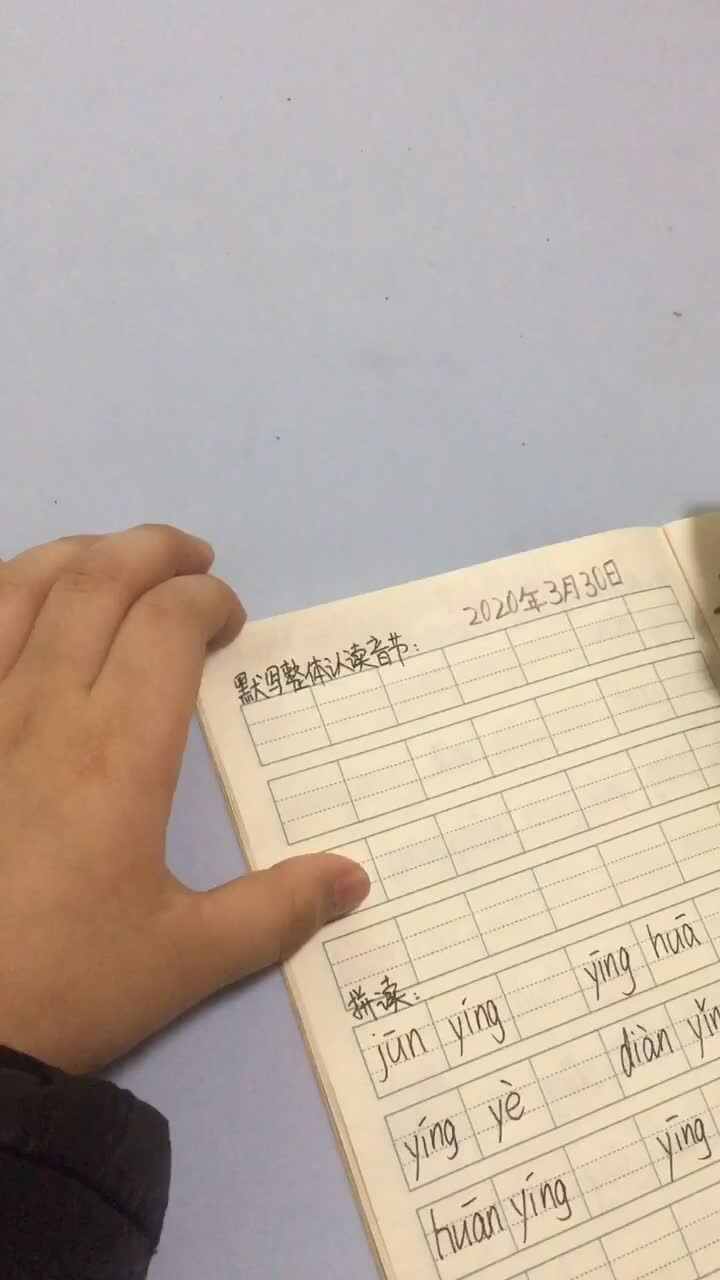 2020年3月30日
默写整体认读音节：
拼读：
jūn yíng yīng huā
yíng yè diàn yǐn
huān yíng yīng